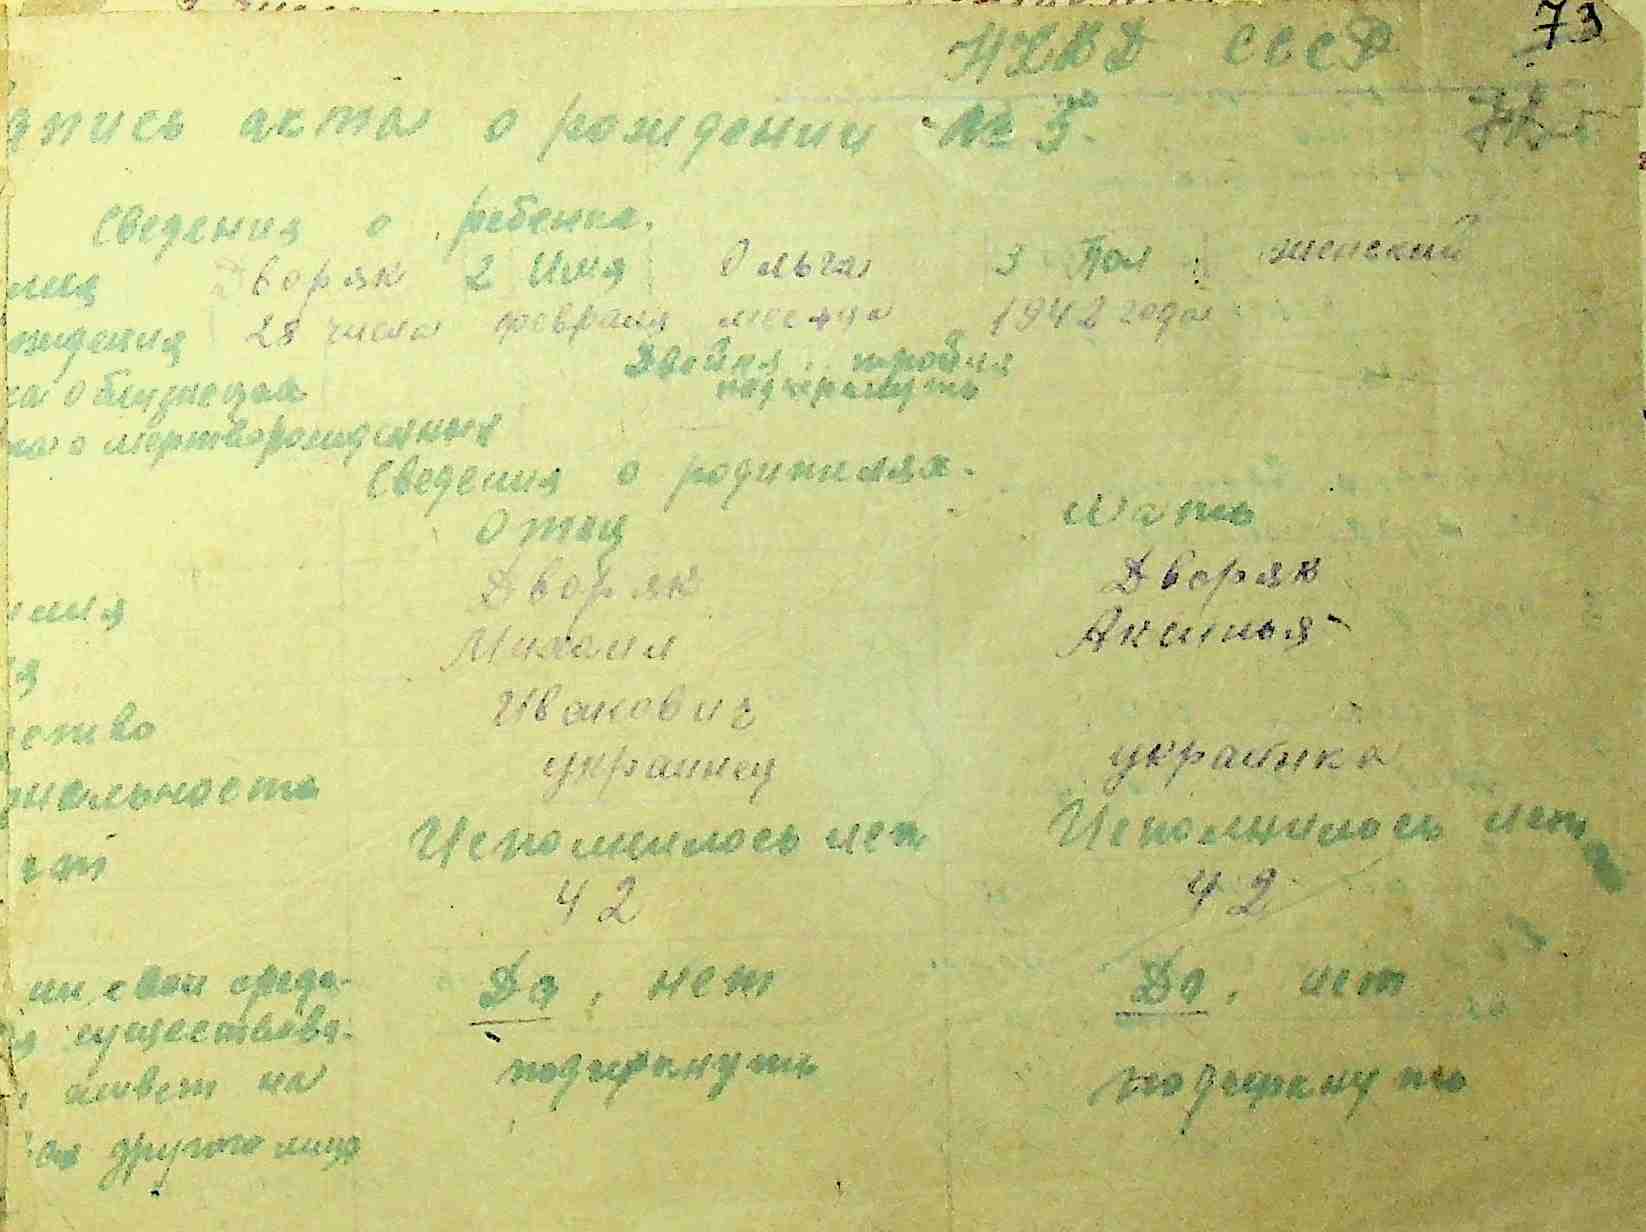 73
НКВД СССР
апись акта о рождении № 5.
Сведения о ребенке.
лия Дворяк 2 Имя Ольга 3 Пол женский
ждения 28 числа февраля месяца 1942 года
Двойня, тройня
ка о близнецах подчеркнуть
о мертворожденных
Сведения о родителях.
Отец Мать
милия Дворяк Дворяк
я Михаил Аксинья
ество Иванович
ональность украинец украинка
Исполнилось лет Исполнилось лет
42 42
ли свои средс- Да, нет Да, нет
существова-
живет на подчеркнуть подчеркнуть
другого лица